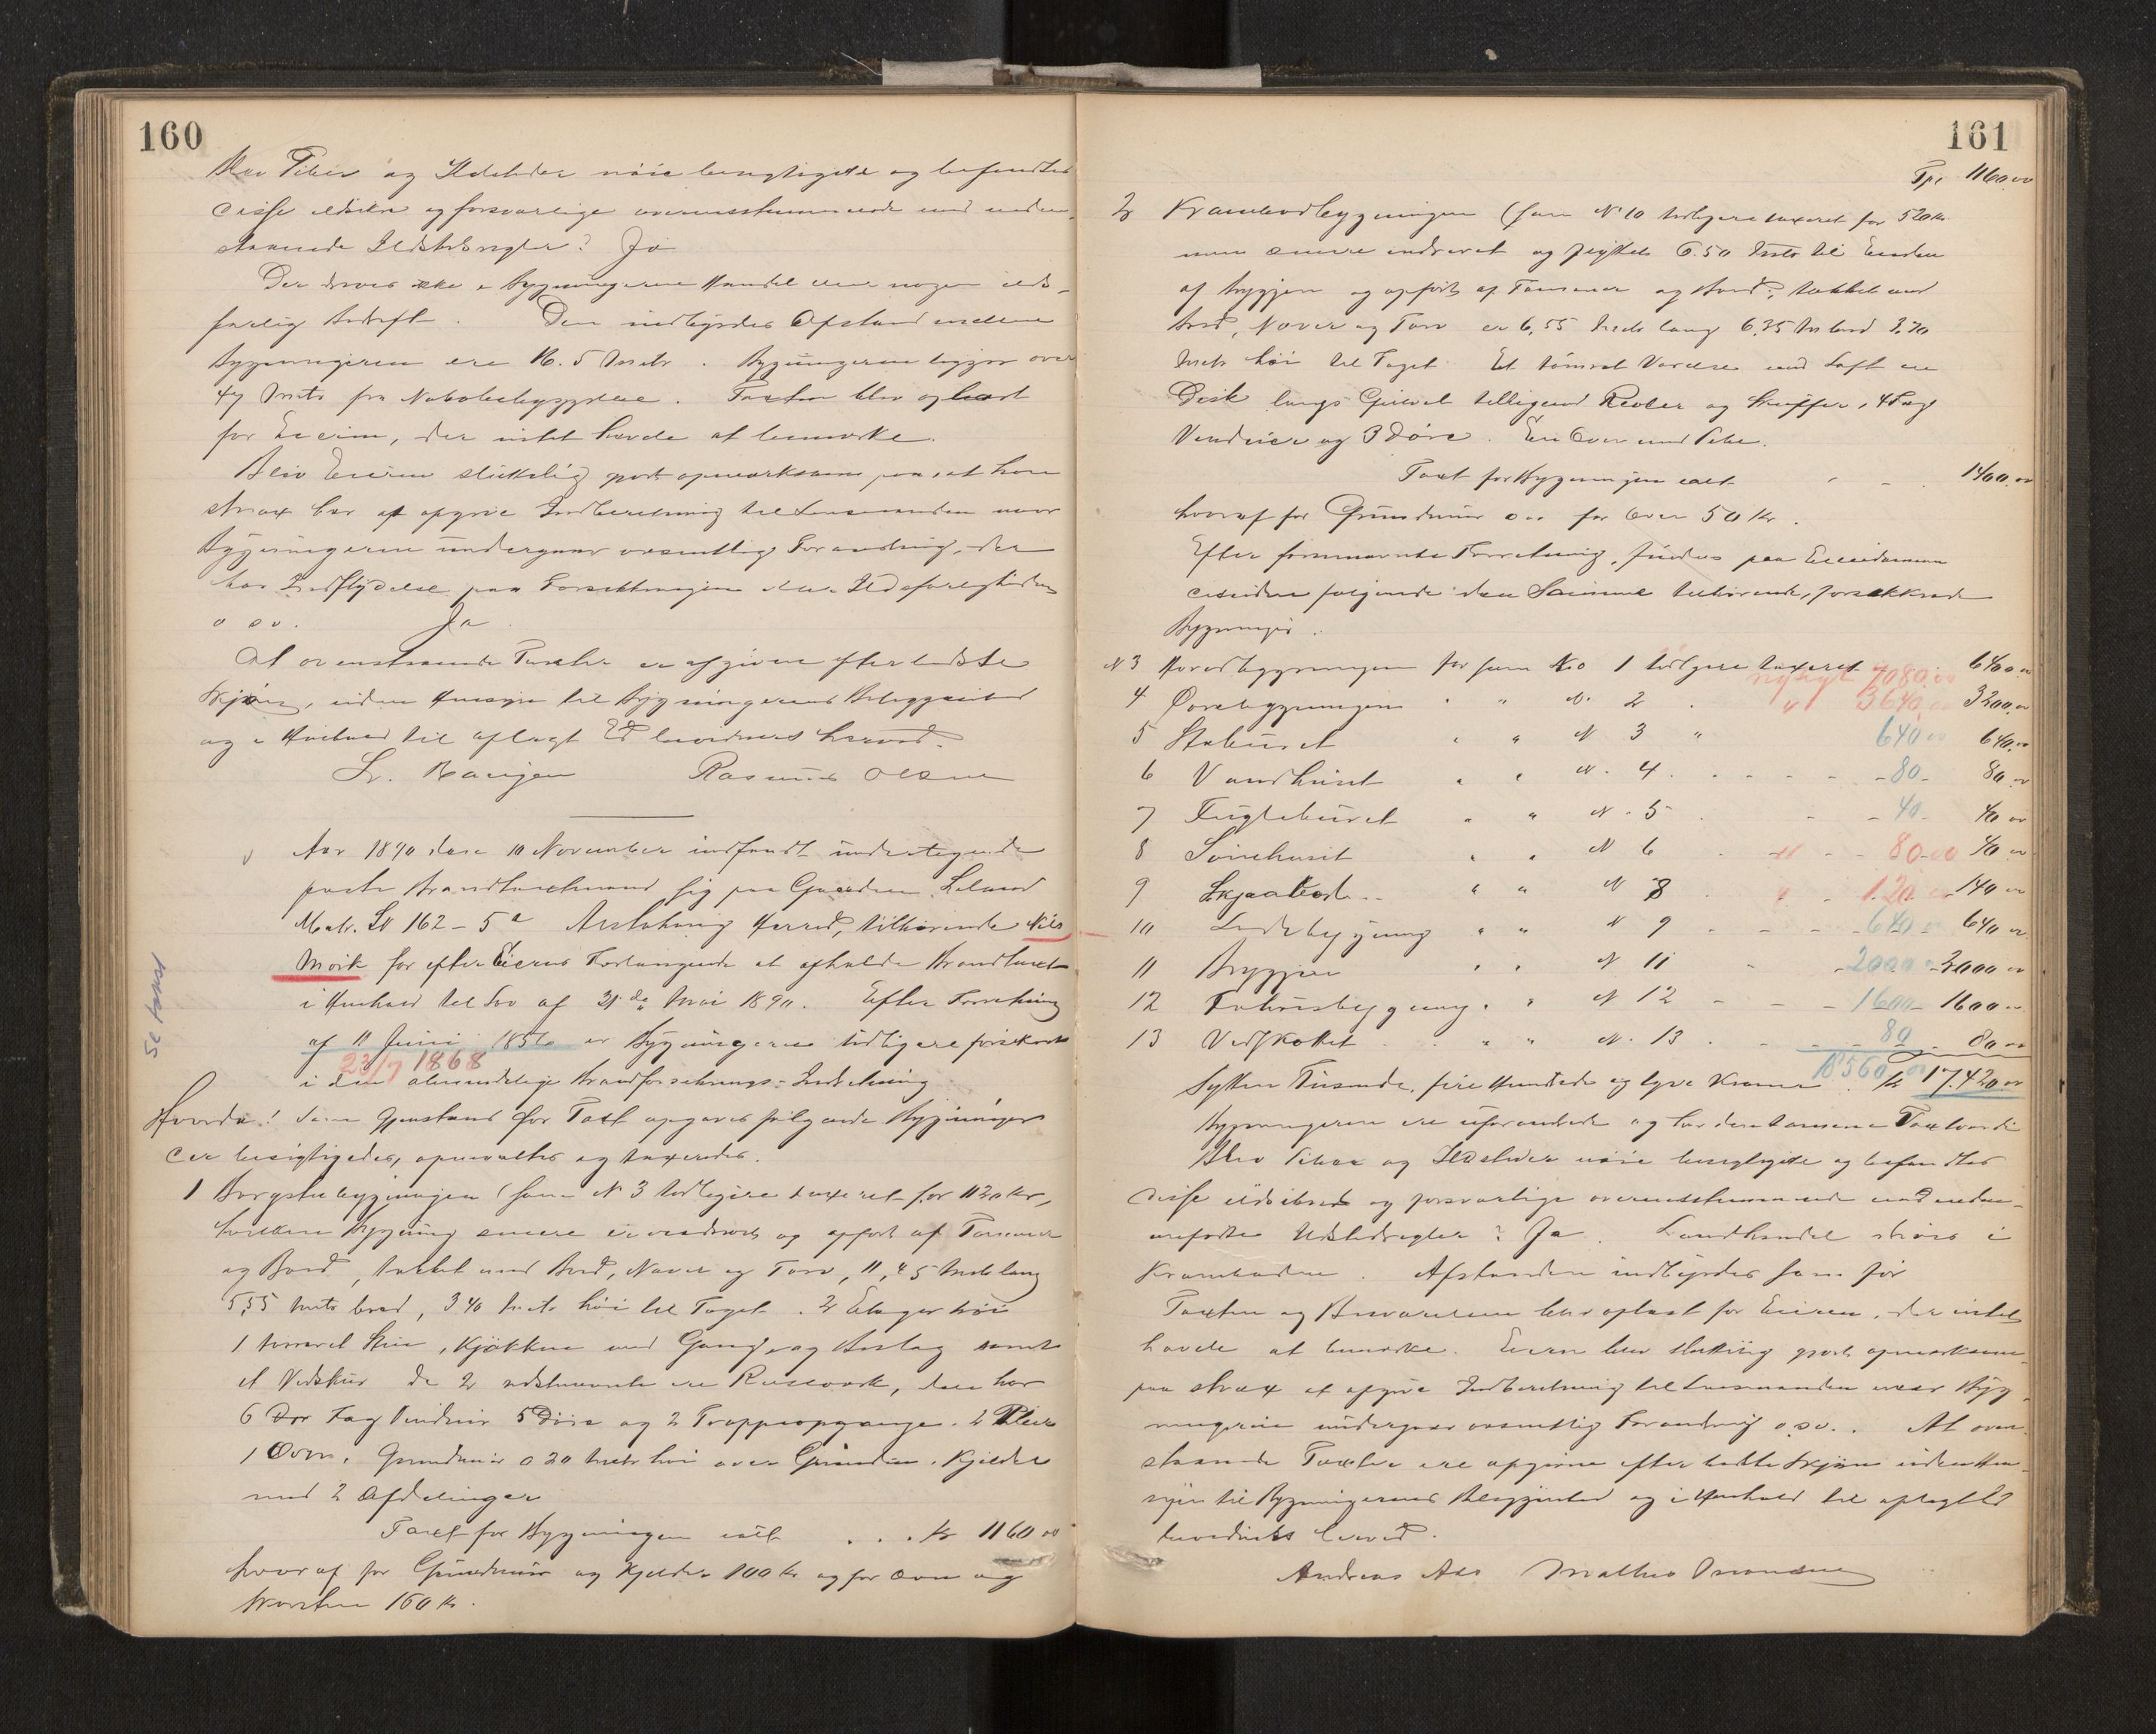 160
Blev Piber og Ildsteder nöie besigtigede og befandtes
disse ildsikre og forsvarlige overensstemmende med neden-
staaende Ildstedsregler? Ja
Der drives ikke i Bygningerne Handel eller nogen ilds-
farlig Bedrift. Den indbyrdes Afstand mellem
Bygningerne ere 16.5 Metr. Bygningerne ligger over
47 Metr fra Nabobebyggelse. Taxten blev oplæst
for Eieren, der intet havde at bemærke.
Blev Eieren skikkelig gjort opmærksom paa, at han
strax bør at opgive Indberetning til Lensmanden naar
Bygningerne undergaar væsentlig Forandring, der
har Indflydelse paa Forsikringen eller Ildsfarligheden
o s v. Ja
At ovenstaaende Taxter er afgivne efter bedste
Skjön, uden Hensyn til Bygningernes Beliggenhed
og i Henhold til aflagt Ed bevidnes herved.
Rasmus Olsen
Aar 1890 den 10 November indfandt undertegnede
faste Brandtaxtmænd sig paa Gaarden Leland
Matr. LN 162 - 5 a Herred, tilhørende Nils
Moik for efter Eierens Forlangende at afholde Brandtaxt
i Henhold til Lov af 31 de Mai 1890. Efter Forretning
af 11 Juni 1856 er Bygningerne tidligere forsikret
23/7 1868
i den almindelige Brandforsikrings-Indretning
Hvorda! Som Gjenstand for Taxt opgaves følgende Bygninger
der besigtigedes, opmaaltes og taxeredes.
1 Borgstubygningen (som N 3 tidligere taxeret for 1120 Kr,
hvilken Bygning senere er nedrevet og opført af Tømmer
og Bord, tækket med Bord, Næver og Torv, 11,45 Metr lang
5,55 Metr bred, 3 40 Metr höi til Taget. 2 Etager höi
1 tømret Stue, Kjøkken med Gang og Beslag samt
et Vedskur de 2 sidstnævnte ere Reisværk, den har
6 Fag Vinduer 5 Døre og 2 Trappeopgange. 2 Piber
1 Ovn. Grundmur 0 30 Metr höi over Grunden. Kjelder
med 2 Afdelinger
Taxt for Bygningen ialt . . . Kr 1160 00
hvoraf for Grundmur og Kjelder 100 Kr og for Ovn og
Skorsten 160 Kr.
Se forut
161
Tpr 1160.00
2 Krambodbygningen (som N 10 tidligere taxeret for 520 Kr
men senere endrevet og flyttet 6.50 Metr til Enden
af Bryggen og opført af Tømmer og Bord, tækket med
Bord, Næver og Torv er 6,55 Metr lang 6,35 M bred 3.70
Metr höi til Taget. Et tømret Værelse med Loft en
Disk langs Gulvet tilligemed Reoler og Skuffer, 4 Fag
Vinduer og 3 Døre. En Ovn med Pibe.
Taxt for Bygningen ialt - - 1400.00
hvoraf for Grundmur 0.. for Ovn 50 Kr.
Efter fornævnte Forretning, findes paa Eiendommen
desuden følgende den Samme tilhørende, forsikrede
Bygninger.
N 3 Hovedbygningen før som No 1 tidligere taxeret 6400.00
nybygt 7080.00
4 Borebygningen " " N. 2 " 3640.00 3200.00
5 Stabburet " " N 3 " 640 00 640.00
6 Vandhuset " " N. 4 - - - - 80 - 80 00
7 Fuglehuset " " N. 5 - - 40 - 40 00
8 Svinehuset " " N 6 - - 80.00 40 00
9 Skjaabod " " N 8 " - 120 00 140 00
10 Ladebygning " " N 9 - - - 640 00 640 00
11 Bryggen " " N 11 - - 2000 00 3000 00
12 Fæhusbygning " " N 12 - - - 1600 - 1600 00
13 Vedskottet " " N. 13 - - - 80 - 80 00
18560 00
Sytten Tusinde, fire Hundrede og tyve Kroner. Kr 17.420 00
Bygningerne ere uforandrede og har den samme Taxtværdi
Blev Piber og Ildsteder nöie besigtigede og befandtes
disse ildsikre og forsvarlige overensstemmende med neden-
anførte Ildstedsregler? Ja. Landhandel drives i
Kramboden. Afstanden indbyrdes som før
Taxten og Besvarelsen blev oplæst for Eieren, der intet
havde at bemærke. Eieren blev skikkelig gjort opmærksom
paa strax at opgive Indberetning til Lensmanden naar Byg-
ningerne undergaar væsentlig Forandring o.s.v. At oven-
staaende Taxter ere afgivne efter bedste Skjøn uden Hen-
syn til Bygningernes Beliggenhed og i Henhold til aflagt Ed
bevidnes herved.
Andreas Aas